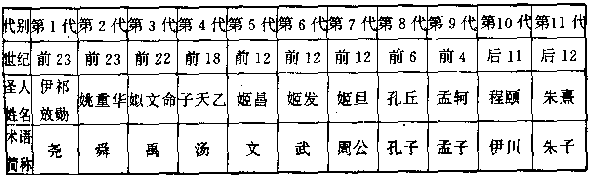 代别 第1代 第2代 第3代 第4代 第5代 第6代 第7代 第8代 第9代 第10代 第11代
世纪 前23 前23 前22 前18 前12 前12 前12 前6 前4 后11 后12
圣人姓名 伊祁放勋 姚重华 姒文命 子天乙 姬昌 姬发 姬旦 孔丘 孟轲 程颐 朱熹
术语简称 尧 舜 禹 汤 文 武 周公 孔子 孟子 伊川 朱子